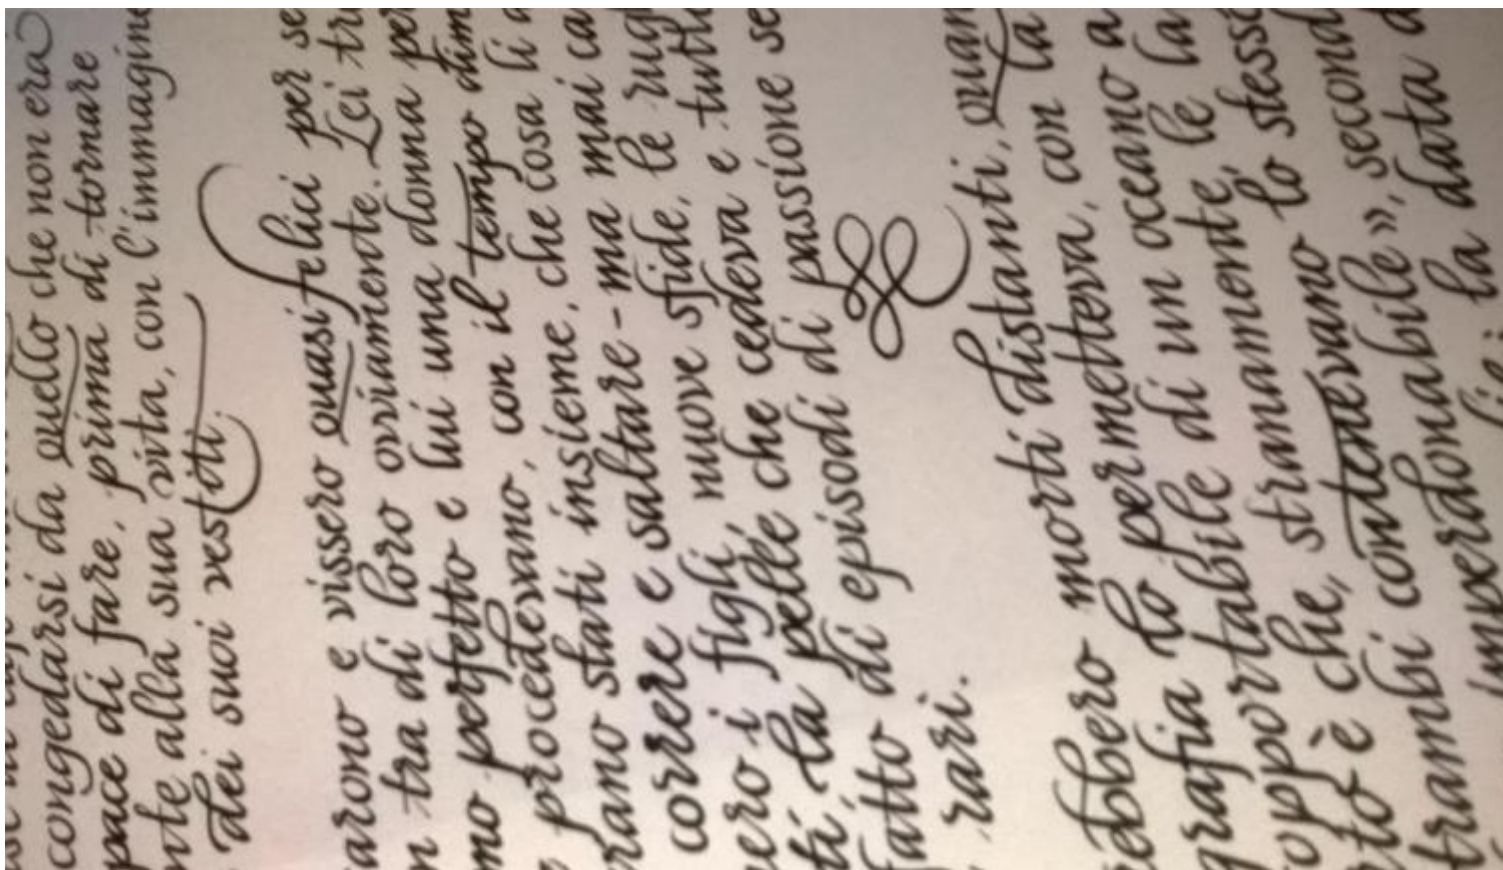 congedarsi da quello che non era
pace di fare, prima di tornare
nte alla sua vita, con l'immagine
dei suoi vestiti.
arono e vissero quasi felici per se
n tra di loro ovviamente. Lei tr
mo perfetto e lui una donna per
procedevano, con il tempo dim
rano stati insieme, che cosa li a
correre e saltare - ma mai ca
ero i figli, nuove sfide, le rug
ti, la pelle che cedeva e tutto
fatto di episodi di passione se
rari.
ebbero morti distanti, quan
grafia lo permetteva, con la
opportabile di un oceano a
to è che, stranamente, le la
trambi contenevano lo stess
imperdonabile», second
la data d